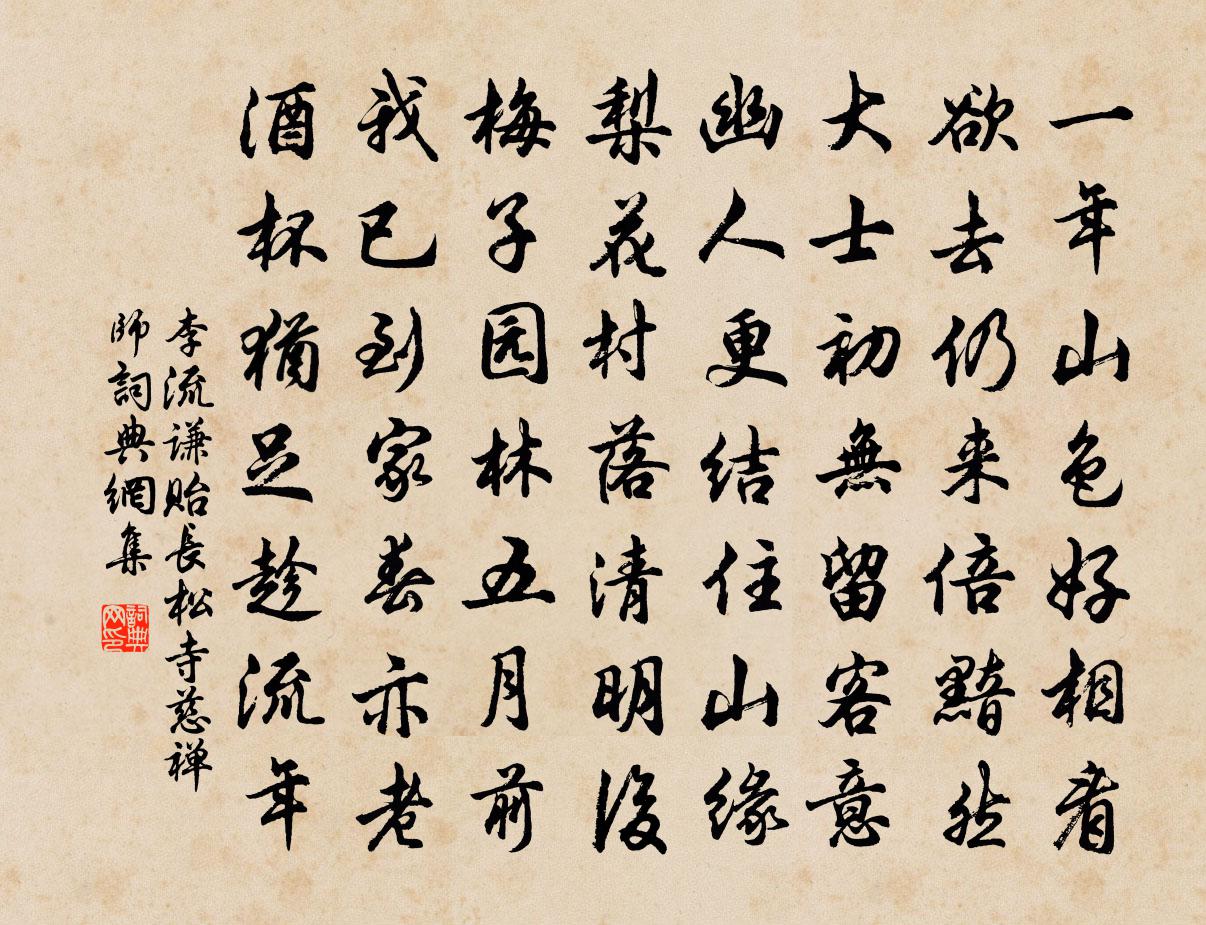 一年山色好相看
欲去仍来倍黯然
大士初無留客意
幽人更结住山緣
梨花村落清明後
梅子园林五月前
我已到家春亦老
酒杯猶足趁流年
李流谦貽長松寺慈禅
師詞典網集
詞典网印